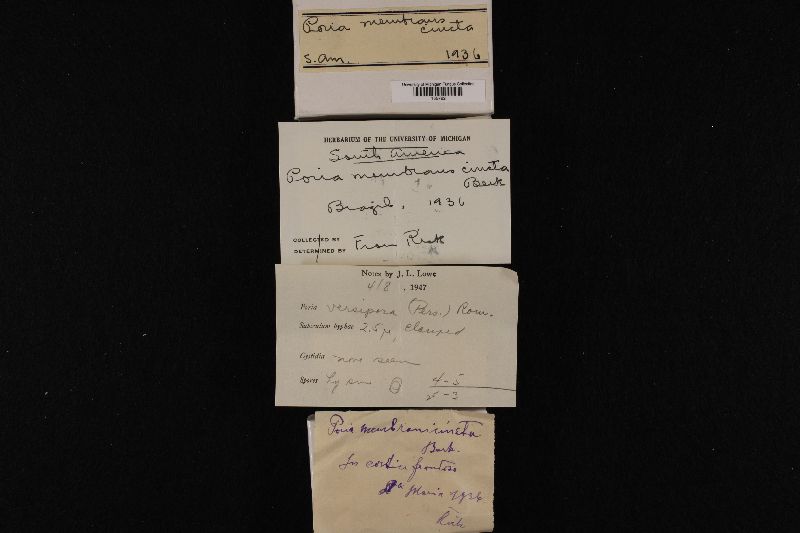 Poria membrans
cincta
S. Am. 1936
University of Michigan Fungus Collection
HERBARIUM OF THE UNIVERSITY OF MICHIGAN
South America
Poria membrans cincta
Berk
Brazil, 1936
COLLECTED BY
DETERMINED BY From Rick
Notes by J. L. Lowe
4/8, 1947
Poria versipora (Pers.) Rom.
Subiculum hyphae 2.5 µ, clamped
Cystidia none seen
Spores 4-5
2-3
Poria membranicincta
Berk.
cortice frondoso
Sta Maria 1936
Rick